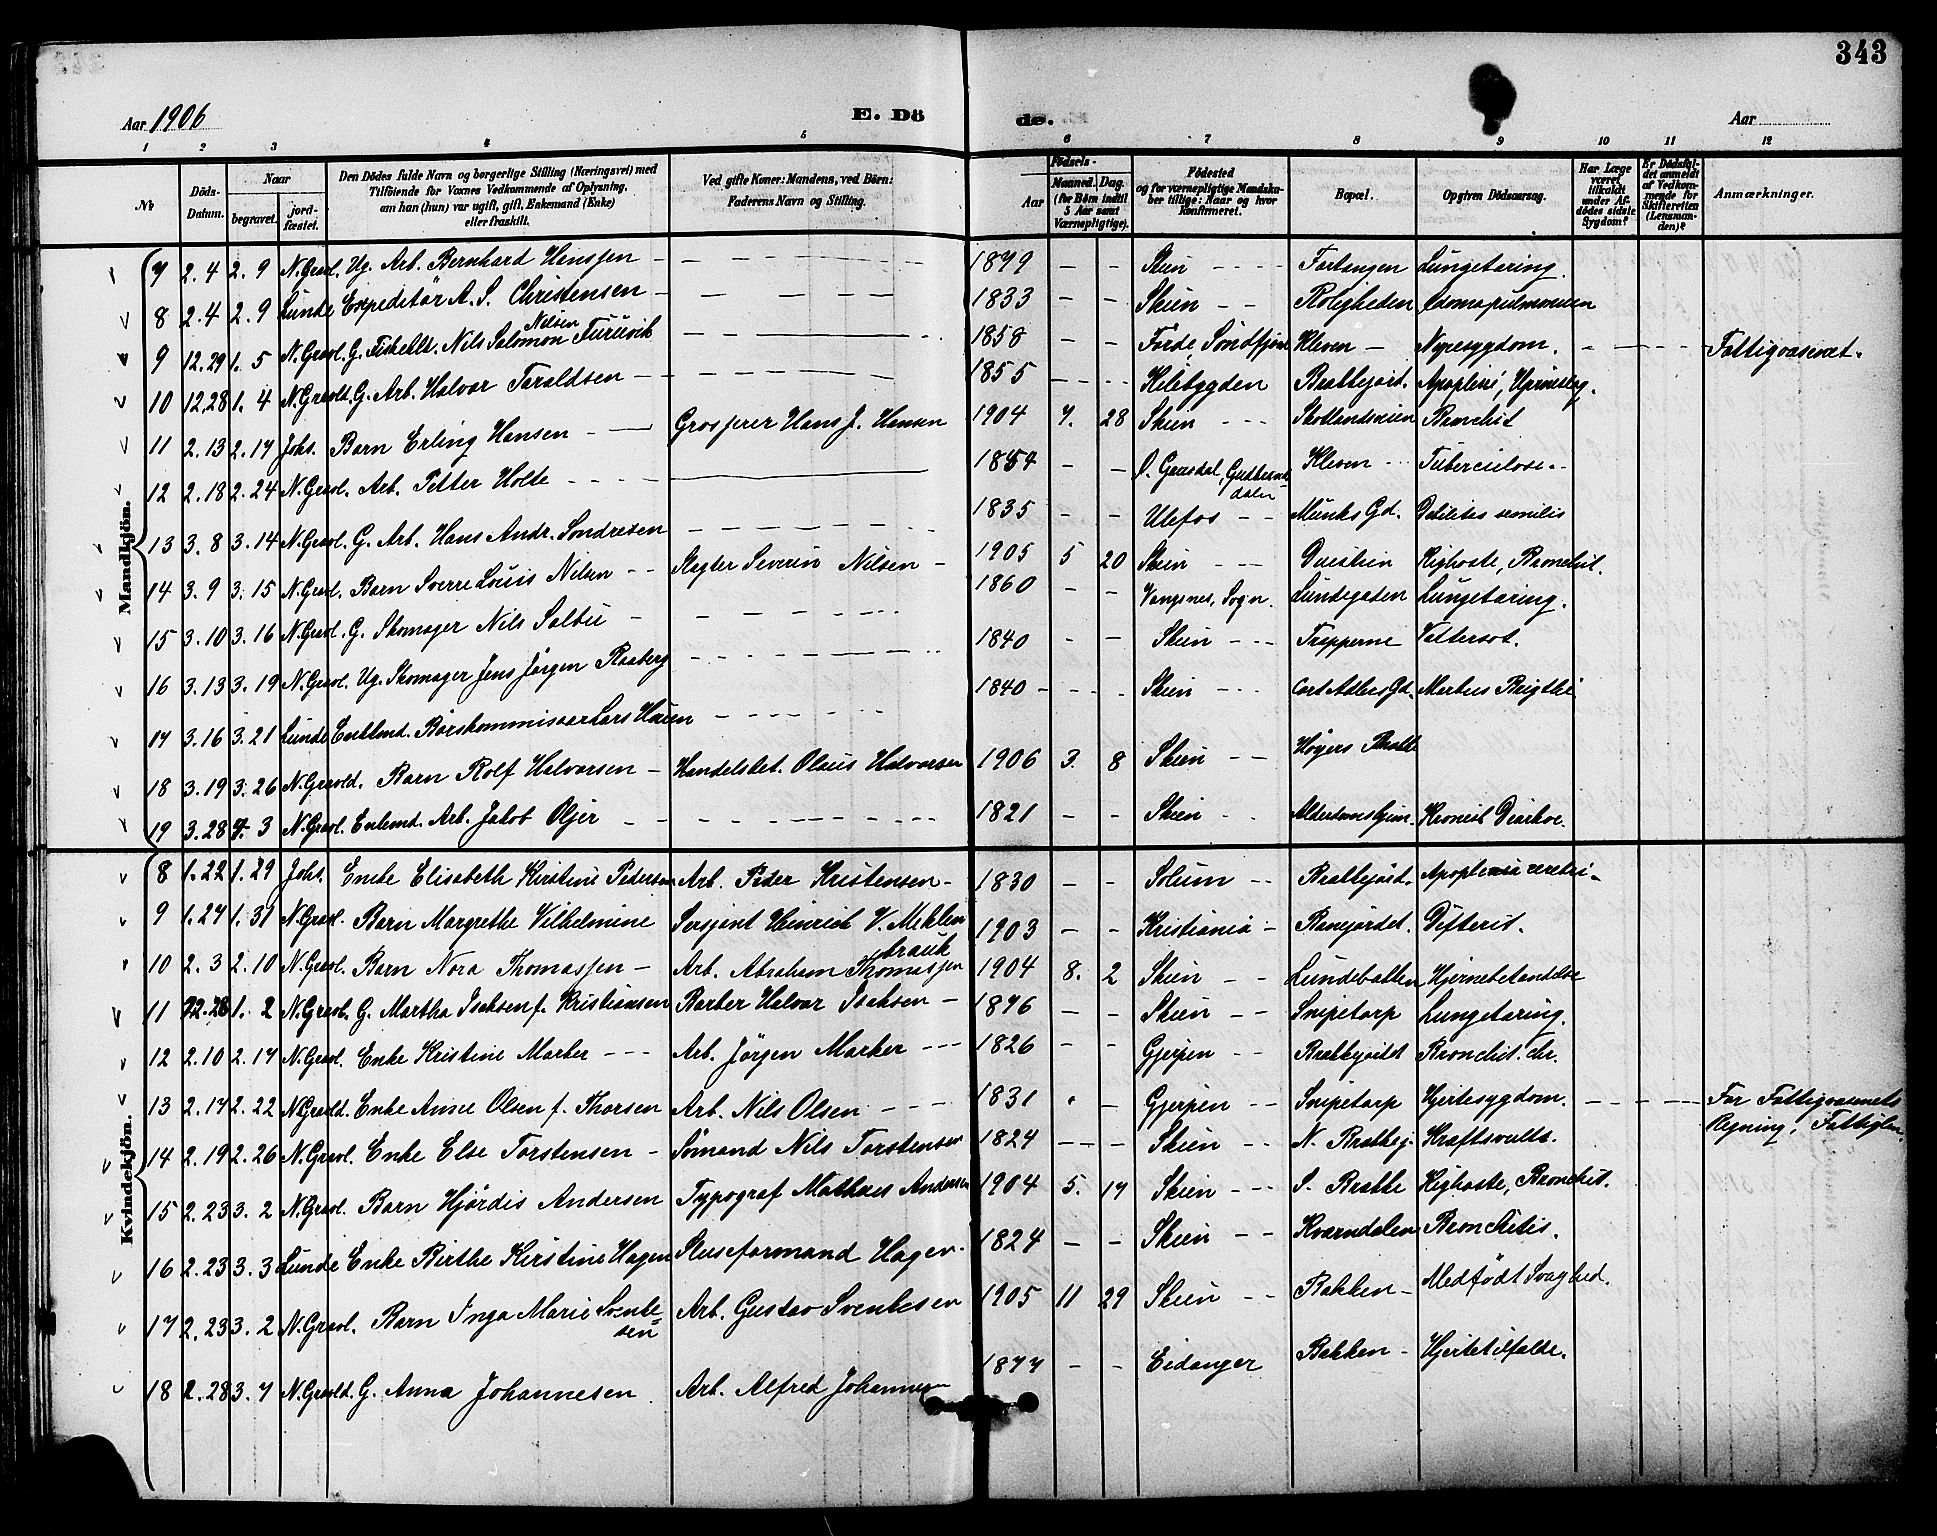 343
Aar 1906 E. Dö de. Aar
1 2 3 4 5 6 7 8 9 10 11 12
No
Döds-Datum.
Naar
begravet.
jordfæstet.
Den Dödes fulde Navn og borgerlige Stilling (Næringsvei) med
Tilföiende for Voxnes Vedkommende af Oplysning,
om han (hun) var ugift, gift, Enkemand (Enke)
eller fraskilt.
Ved gifte Koner: Mandens, ved Börn:
Faderens Navn og Stilling.
Födsels-
Aar
Maaned. Dag.
(for Börn indtil
5 Aar samt
Værnepligtige).
Födested
og for værnepligtige Mandska-
ber tillige: Naar og hvor
konfirmeret.
Bopæl.
Opgiven Dödsaarsag.
Har Læge
været
tilkaldt
under Af-
dödes sidste
Sygdom?
Er Dödsfal-
det anmeldt
af Vedkom-
mende for
Skifteretten
(Lensman-
den)?
Anmærkninger.
Mandkjön.
7 2.4 2.9 N. Gravl. Ug. Arb. Bernhard Hanssen 1879 Skien Fortangen Lungetæring.
8 2.4 2.9 Lunde Expeditör A. S. Christensen 1833 Skien Roligheden Ødoma pulmonum
9 12.29 1.5 N. Gravl. G. Nils Salomon Nilsen Furuvik 1858 Förde, Söndfjord Kleven Nyresygdom. Fattigvæsenet.
10 12.28 1.4 N. Gravld. G. Arb. Halvor Taraldsen 1855 Kilebygden Brattejord. Apoplexi, Hjerneslag.
11 2.13 2.17 Johs. Barn Erling Hansen Grosserer Hans J. Hansen 1904 7. 28 Skien Skotlandsveien Bronchit
12 2.18 2.24 N. Gravl. Arb. Petter Holte Ø. Gausdal, Gudbrandsdalen Kleven Tuberculose.
13 3.8 3.14 N. Gravl. G. Arb. Hans Andr. Sondresen 1835 Ulefos Munks Gd. Debilitas senilis
14 3.9 3.15 N. Gravl. Barn Sverre Louis Nilsen Slagter Severin Nilsen 1905 5 20 Skien Duestien Kighoste, Bronchit.
15 3.10 3.16 N. Gravl. G. Skomager Nils Salbu 1860 Vangsnes, Sogn. Lundegaden Lungetæring.
16 3.13 3.19 N. Gravl. Ug. Skomager Jens Jörgen Raaberg 1840 Skien Trapperne Vattersot.
17 3.16 3.21 Lunde Enkemd. Börskommissær Lars Hauen 1840 Skien Cort Adlers Gd. Morbus Brigthi
18 3.19 3.26 N. Gravld. Barn Rolf Halvorsen Handelsbet. Olaus Halvorsen 1906 3. 8 Skien Höyers Bratte
19 3.28 4.3 N. Gravl. Enkemd. Arb. Jakob Oljer 1821 Skien Alderdomshjem. Kronisk Diarhoe.
Kvindekjön.
8 1.22 1.29 Johs. Enke Elisabeth Kirstine Pedersen Arb. Peder Kristensen 1830 Solum Brattejord. Apoplexia cerebri
9 1.27 1.31 N. Gravl. Barn Margrethe Vilhelmine Sersjant Heinrich V. Meklenbrauk 1903 Kristiania Banejordet. Difterit.
10 2.3 2.10 N. Gravl. Barn Nora Thomassen Arb. Abraham Thomassen 1904 8. 2 Skien Lundebakken Hjernebetændelse
11 12.28 1.2 N. Gravl. G. Martha Isaksen f. Kristiansen Barber Halvor Isaksen 1876 Skien Snipetorp Lungetæring.
12 2.10 2.17 N. Gravl. Enke Kristine Marker Arb. Jörgen Marker 1826 Gjerpen Brattejordet Bronchit. chr.
13 2.17 2.22 N. Gravld. Enke Anne Olsen f. Thorsen Arb. Nils Olsen 1831 Gjerpen Snipetorp Hjertesygdom. For Fattigvæsnets
Regning,
14 2.19 2.26 N. Gravl. Enke Else Torstensen Sömand Nils Torstensen 1824 Skien N. Brattej. Kraftsvulst.
15 2.23 3.2 N. Gravl. Barn Hjördis Andersen Typograf Mathæus Andersen 1904 5. 17 Skien S. Bratte Kighoste, Bronchit.
16 2.23 3.3 Lunde Enke Birthe Kirstine Hagen Sluseformand Hagen 1824 Skien Kværndalen Bronchitis.
17 2.23 3.2 N. Gravl. Barn Inga Marie Svenkesen Arb. Gustav Svenkesen 1905 11 29 Skien Bakken Medfödt Svaghed.
18 2.28 3.7 N. Gravld. G. Anna Johannesen Arb. Alfred Johannesen 1877 Eidanger Bakken Hjertetilfælde.